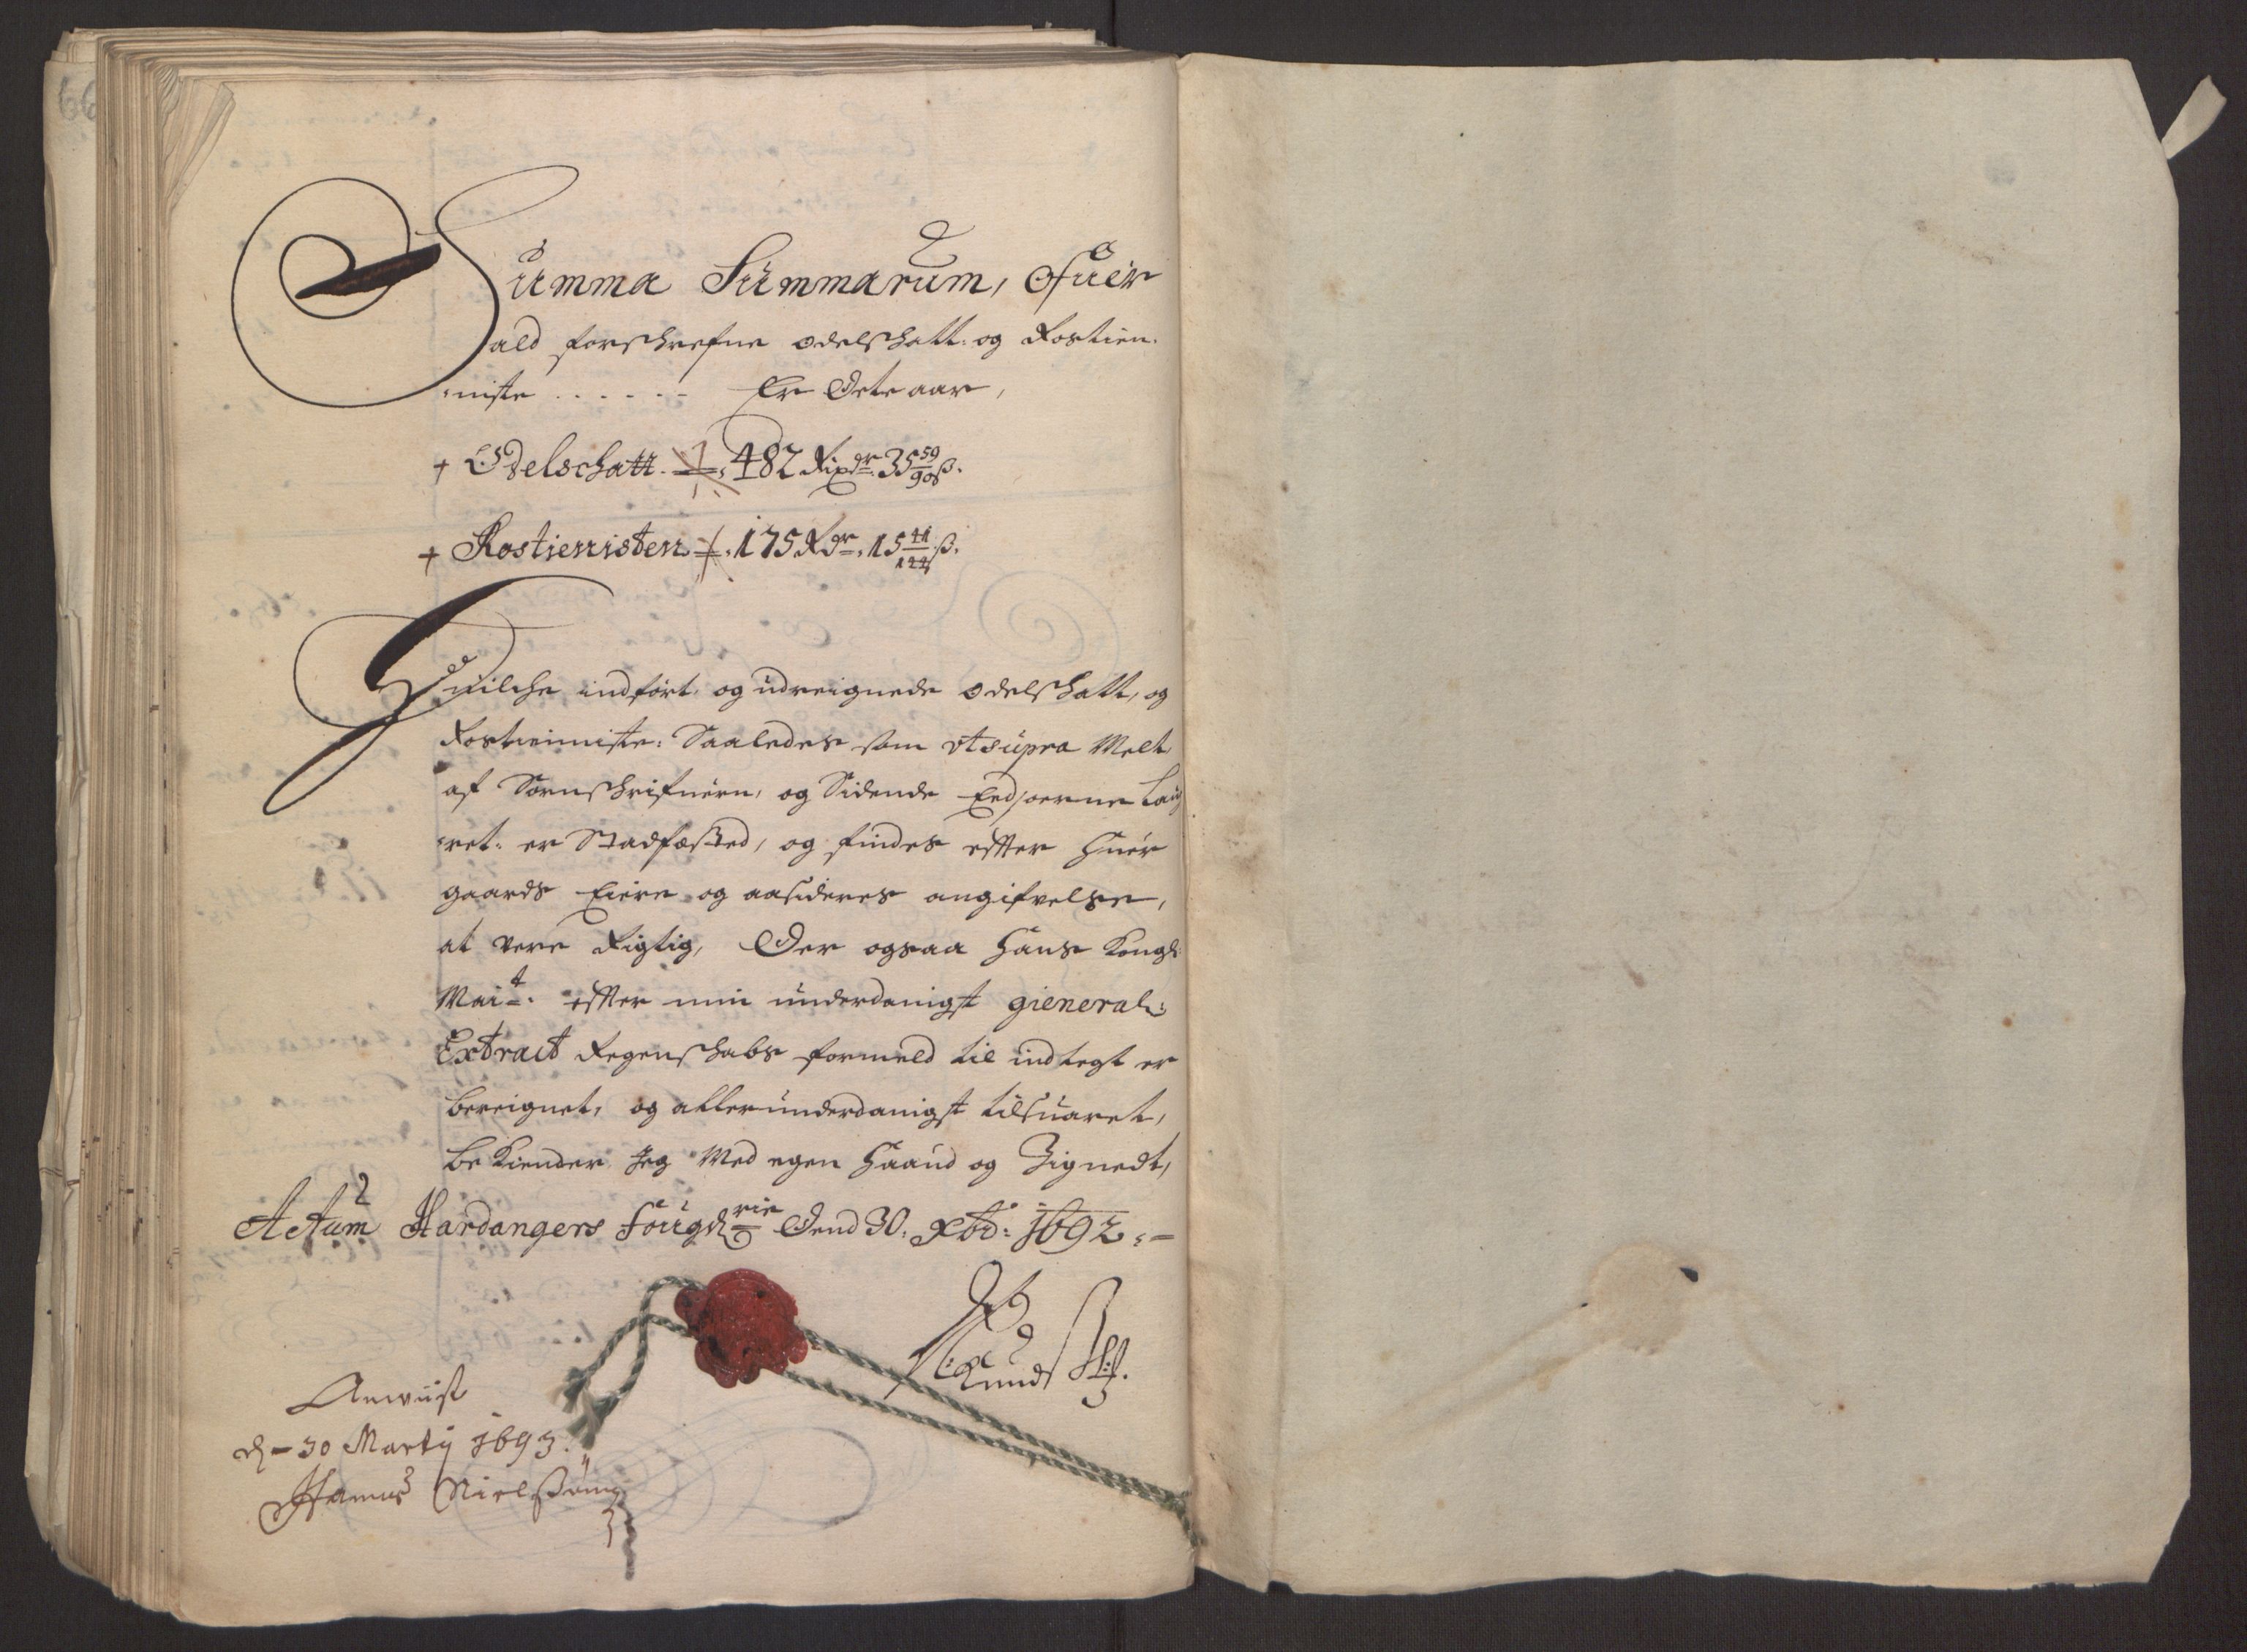 66
Summa Summarum, Ofuer
ald forschrefne odelschatt. og Rostien.
niste . . . . . . Er Dete aar,
+ Odelschatt. 482 Rixdr. 35 59/90 ß.
+ Rostienisten 175 Rdr. 15 41/144 ß.
Huilche indført, og udreignede odelschatt, og
Rostienniste: Saaledes som vtsupra Melt
af Sornschrifueren, og Sidende
ret. er Stadfæsted, og findes effter huer
gaards Eiere og aasideres angifvelse,
at vere Rigtig, Der ogsaa Hans Kongl:
Mait. effter min underdanigst gieneral:
Extract Regenschabs formeld til indtegt er
bereignet, og allerunderdanigst tilsuaret,
be Kiender Jeg Med egen Haand og Zignedt,
Actum Hardangers fougdrie Dend 30. Xbr: 1692.
Knud
Anwiist
d - 30 Marty 1693.
Hanns Nielssønn